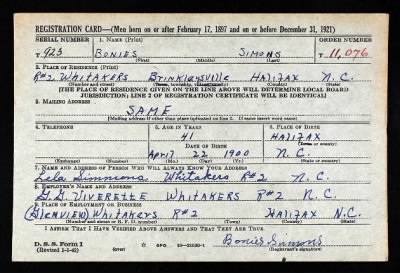 REGISTRATION CARD—(Men born on or after February 17, 1897 and on or before December 31, 1921)
SERIAL NUMBER 1. NAME (Print) ORDER NUMBER
T 923 BONIES SIMONS T 11,076
(First) (Middle) (Last)
2. PLACE OF RESIDENCE (Print)
R#2 WHITAKERS Brinkleysville HALIFAX N.C.
(Number and street) (Town, township, village, or city) (County) (State)
[THE PLACE OF RESIDENCE GIVEN ON THE LINE ABOVE WILL DETERMINE LOCAL BOARD
JURISDICTION; LINE 2 OF REGISTRATION CERTIFICATE WILL BE IDENTICAL]
3. MAILING ADDRESS
SAME
[Mailing address if other than place indicated on line 2. If same insert word same]
4. TELEPHONE 5. AGE IN YEARS 6. PLACE OF BIRTH
41 HALIFAX
DATE OF BIRTH (Town or county)
April 22 1900 N.C.
(Exchange) (Number) (Mo.) (Day) (Yr.) (State or country)
7. NAME AND ADDRESS OF PERSON WHO WILL ALWAYS KNOW YOUR ADDRESS
Lela Simmons Whitakers R#2 N.C.
8. EMPLOYER'S NAME AND ADDRESS
G.G. VIVERETTE WHITAKERS R#2 N.C.
9. PLACE OF EMPLOYMENT OR BUSINESS
(Glenview) Whitakers R#2 HALIFAX N.C.
(Number and street or R. F. D. number) (Town) (County) (State)
I AFFIRM THAT I HAVE VERIFIED ABOVE ANSWERS AND THAT THEY ARE TRUE.
D. S. S. Form 1 Bonies Simons
(Revised 1-1-42) (over) GPO 16—21630-1 (Registrant's signature)